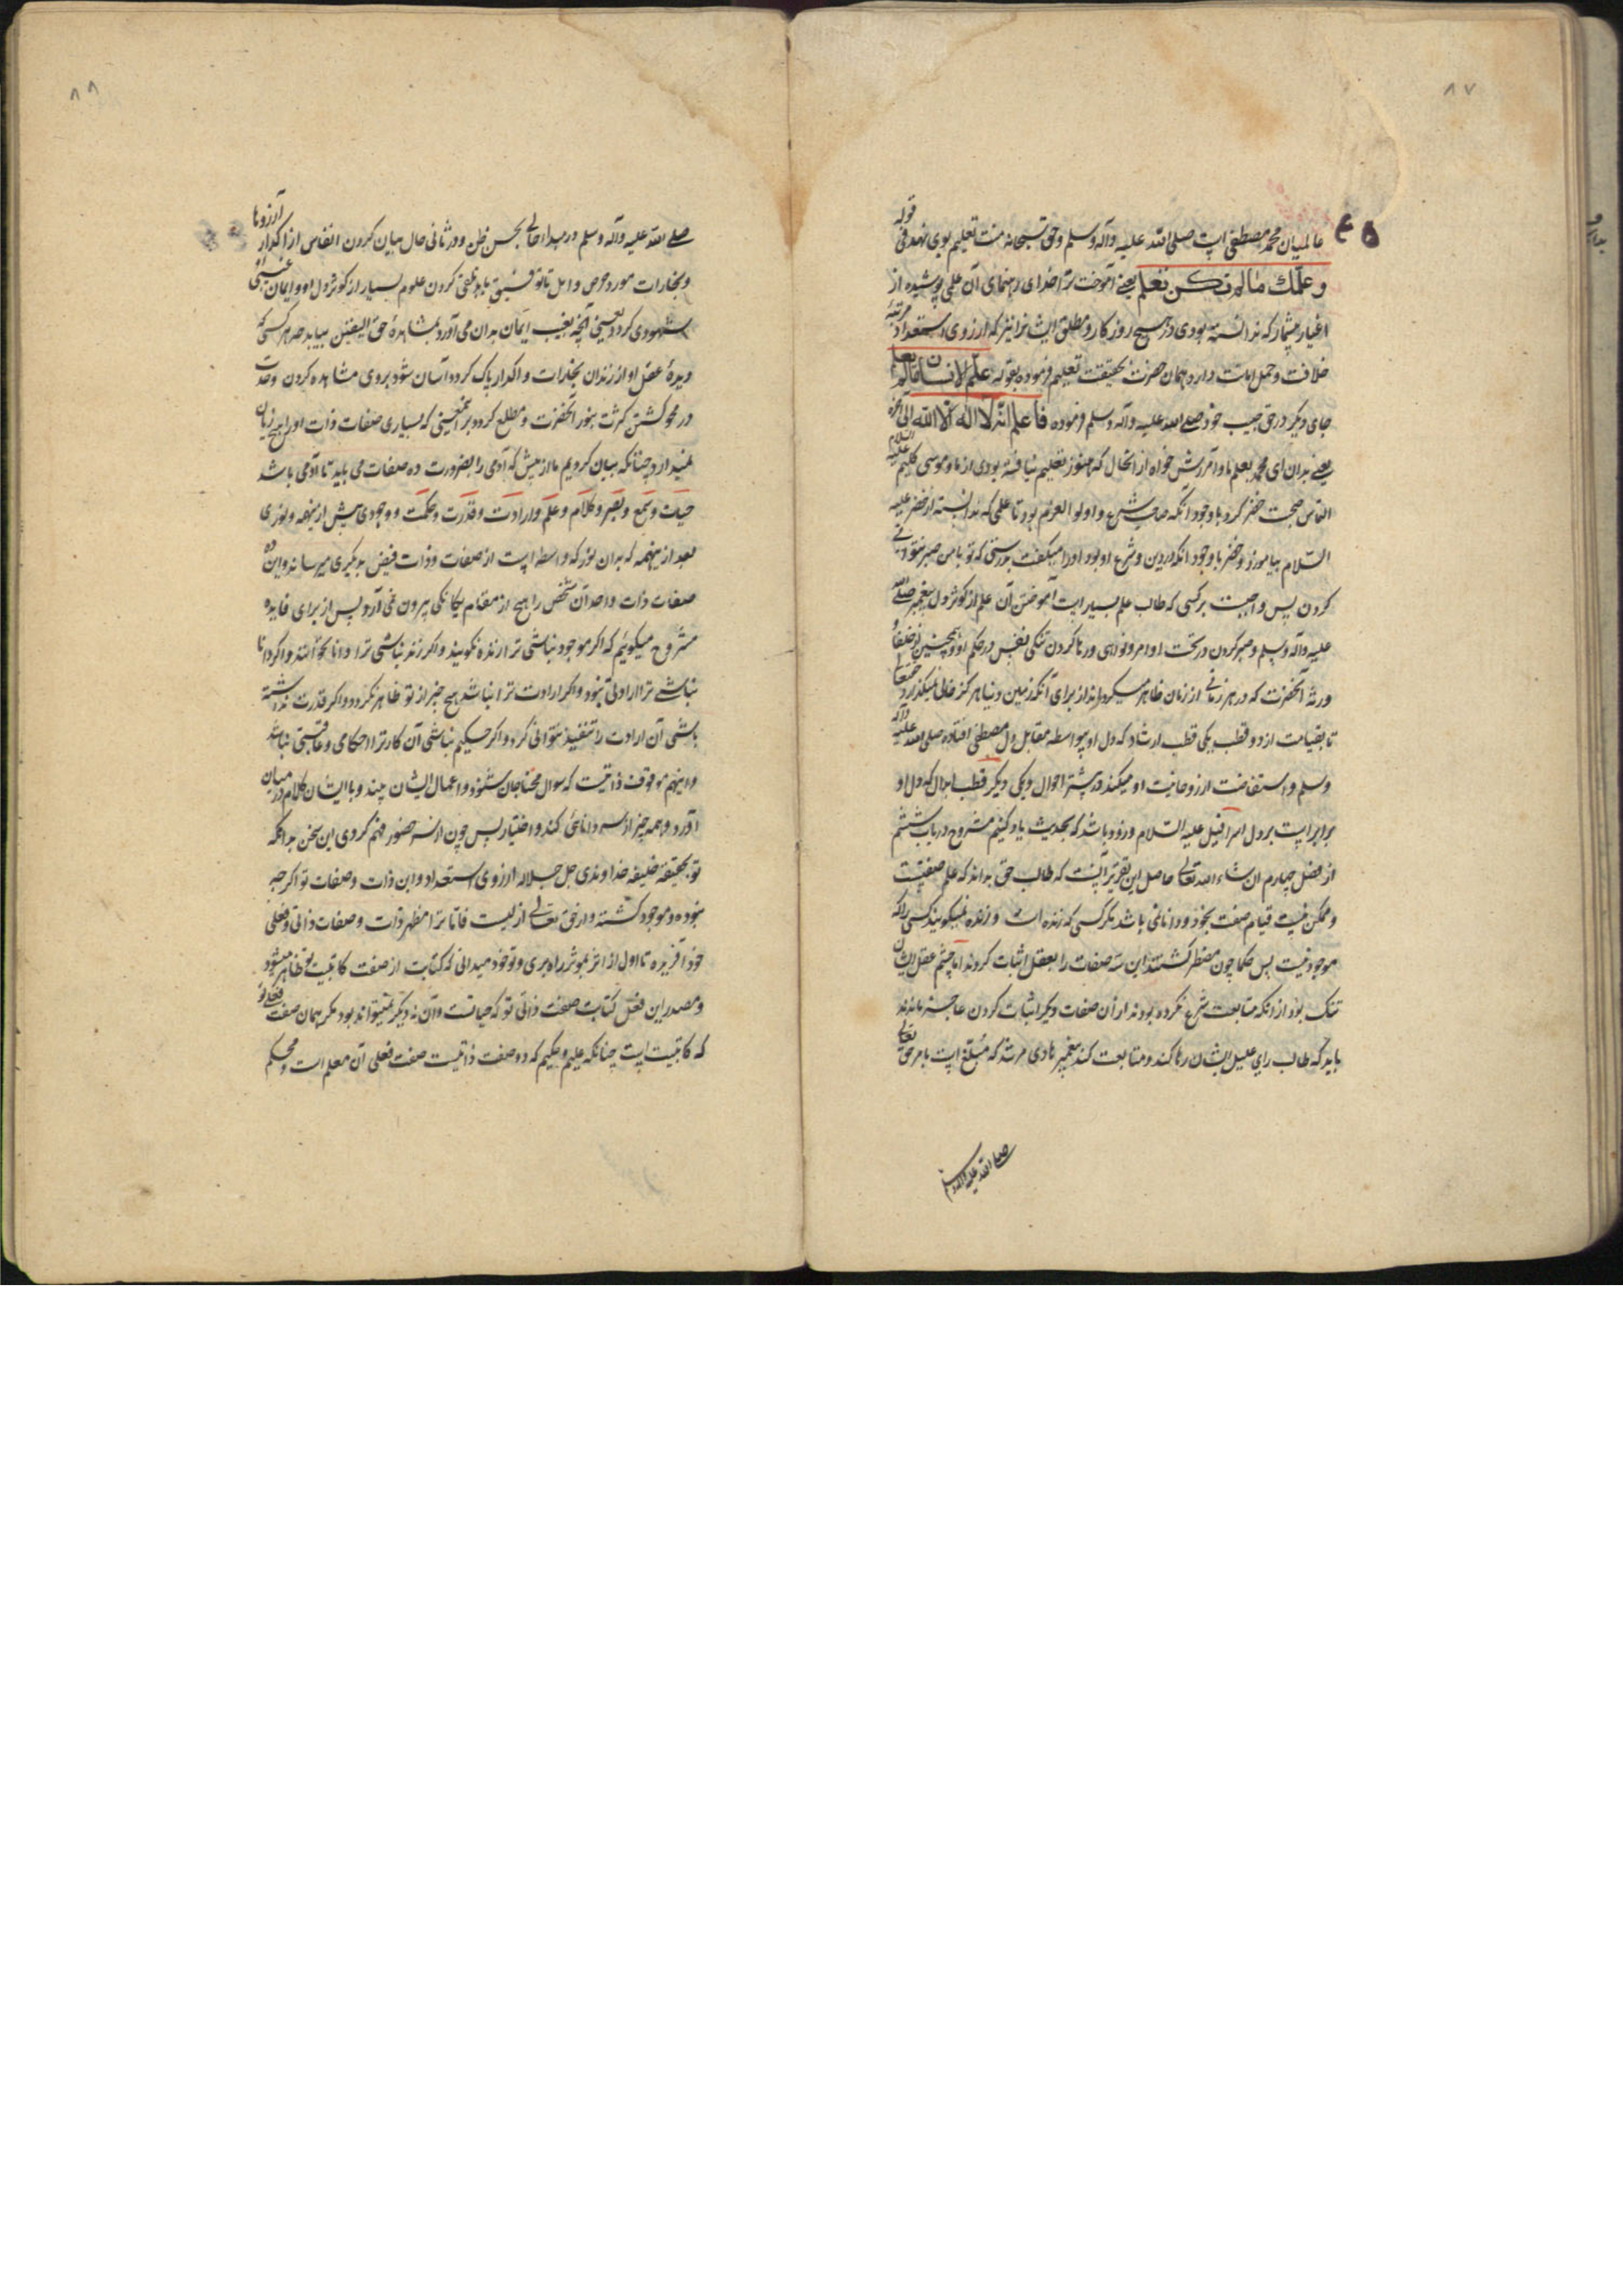 ۸۷
عالمیان محمد مصطفی است صلی الله علیه وآله وسلم وحق سبحانه منت تعلیم بوی نهد فی قوله
و علّمك ماله تكن تعلم یعنی آموخت ترا خدای رهنمای آن علمی پوشیده از
اغیار بیشمار که ندانسته بودی در هیچ روزکار و مطلق ایشانرا نیز که ارزوی استعداد مرتبهٔ
خلافت وحمل امانت دارد همان حضرت بحقیقت تعلیم فرموده بقوله علّم الانسان مالم یعلم
جای دیگر در حق حبیب خود صلی الله علیه وآله وسلم فرموده فاعلم انّه لا اله الّا الله الی آخره
یعنی بدان ای محمد بعلم ما و آمرزش خواه از انحال که هنوز تعلیم نیافته بودی از ما و موسی کلیم علیه السلام
التماس صحبت خضر کرد با وجود انکه صاحب شرع و اولوالعزم بود تا علمی که ندانسته از خضر علیه
السّلام بیاموزد و خضر با وجود انکه در دین و شرع او بود اورا میکفت بدرستی که تو با من صبر نتوانی
کردن پس واجبست بر کسی که طالب علم بسیار است آموختن آن علم از کوثر دل پیغمبر صلی الله
علیه وآله وسلم و صبر کردن در تحت اوامر و نواهی و رها کردن تنگی نفس در حکم او و همچنین از خلفا و
ورثهٔ آنحضرت که در هر زمانی از زمان ظاهر میکرداند از برای آنکه زمین دنیا هرکز خالی نمیکذرد حقتعالی
تا بقیامت از دو قطب یکی قطب ارشاد که دل او بیواسطه مقابل دل مصطفی افتاده صلی الله علیه وآله
وسلم و استفاضت از روحانیت او میکند در بیشتر احوال و یکی دیگر قطب ابدال که دل او
برابر است بر دل اسرافیل علیه السلام و زود باشد که بحدیث یاد کنیم مشروح در باب ششم
از فصل چهارم ان شاء الله تعالی حاصل این تقریر آنست که طالب حق بداند که علم صفتیست
و ممکن نیست قیام صفت بخود و دانا نمی باشد مکر کسی که زنده است و زنده نمیکویند کسی را که
موجود نیست پس حکما چون مضطر کشتند این سه صفات را بعقل اثبات کردند اما چشم عقل ایشان
تنک بود از انکه متابعت شرع نکرده بودند از آن صفات دیگر اثبات کردن عاجز ماندند
باید که طالب رای علیل ایشان رها کند و متابعت کند پیغمبر هادی مرشد که مُبلّغ است بامر حق تعالی
صلی الله علیه وآله وسلم
۸۸
صلی الله علیه وآله وسلم در مبدا حالی بحسن ظن و در ثانی حال بیان کردن انفاس از اکدار آرزوها
و بخارات مورد حرص و امل تا توفیق یابد تلقی کردن علوم بسیار از کوثر دل او و ایمان غیبی
شهودی کردد یعنی آنچه بغیب ایمان بدان می آورد بمشاهدهٔ حق الیقین بیابد هر کسی که
دیدهٔ عقل او از زندان بخارات و اکدار پاک کردد آسان شود بروی مشاهده کردن وحدت
در محو کشتن کثرت بنور آنحضرت و مطلع کردد بر انمعنی که بسیاری صفات ذات اورا هیچ زیان
نمیدارد چنانکه بیان کردیم ما از پیش که آدمی را بضرورت ده صفات می باید تا آدمی باشد
حیات و سمع و بصر و کلام و علم و ارادت و قدرت و حکمت و وجودی پیش ازینهمه و نوری
بعد ازینهمه که بدان نور که واسطه است از صفات و ذات فیض بدیکری میرساند و این ده
صفات ذات واحد آن شخص را هیچ از مقام یکانکی بیرون نمی آرد پس از برای فایده
مشروح میکویم که اکر موجود نباشی ترا زنده نکویند و اکر زنده نباشی ترا دانا نخوانند و اکر دانا
نباشی ترا ارادتی نبود و اکر ارادت ترا نباشد هیچ چیز از تو ظاهر نکردد و اکر قدرت نداشته
باشی آن ارادت را تنفیذ نتوانی کرد و اکر حکیم نباشی آن کار ترا احکامی و عاقبتی نباشد
و اینهم موقوف ذاتیست که سوال محتاجان شنود و اعمال ایشان بیند و با ایشان کلام در میان
آورد و همه چیز از سر دانائی کند و اختیار پس چون از سر حضور فهم کردی این سخن بدانکه
تو بحقیقة خلیفهٔ خداوندی جل جلاله از روی استعداد و این ذات و صفات تو اکر چه
نبوده و موجود کشته و از حق تعالی ازلیست فاما ترا مظهر ذات و صفات ذاتی و فعلی
خود آفریده تا اول از اثر بموثر راه بری و تو خود میدانی که کتابت از صفت کاتبیت تو ظاهر میشود
و مصدر این فعل کتابت صفت ذاتی تو که حیاتست و آن نه دیگر نمیتواند بود مکر همان صفت فعلی تو
که کاتبیت است چنانکه علیم و حکیم که دو صفت ذاتیست صفت فعلی آن معلم است و محکم